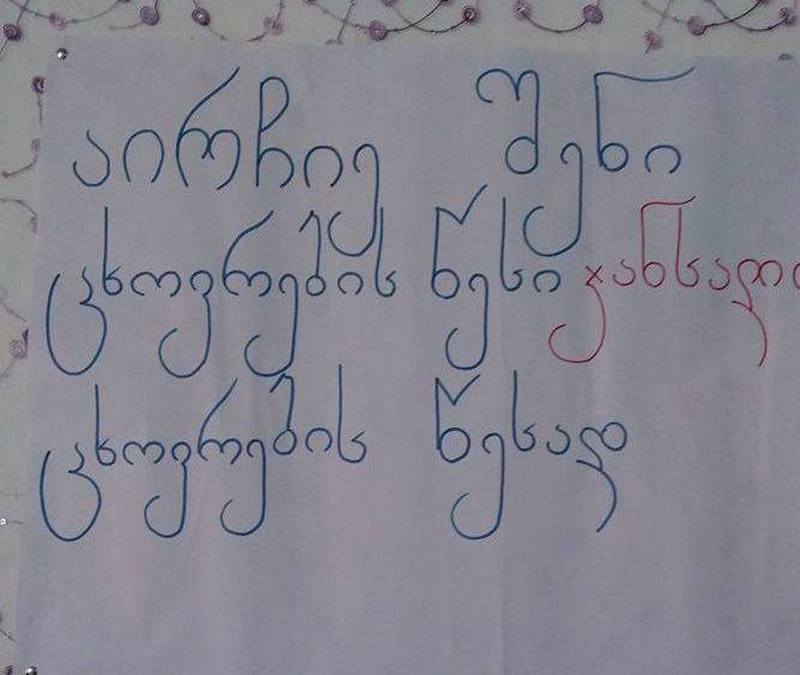 აირჩიე შენი
ცხოვრების წესი ჯანსაღი
ცხოვრების წესად